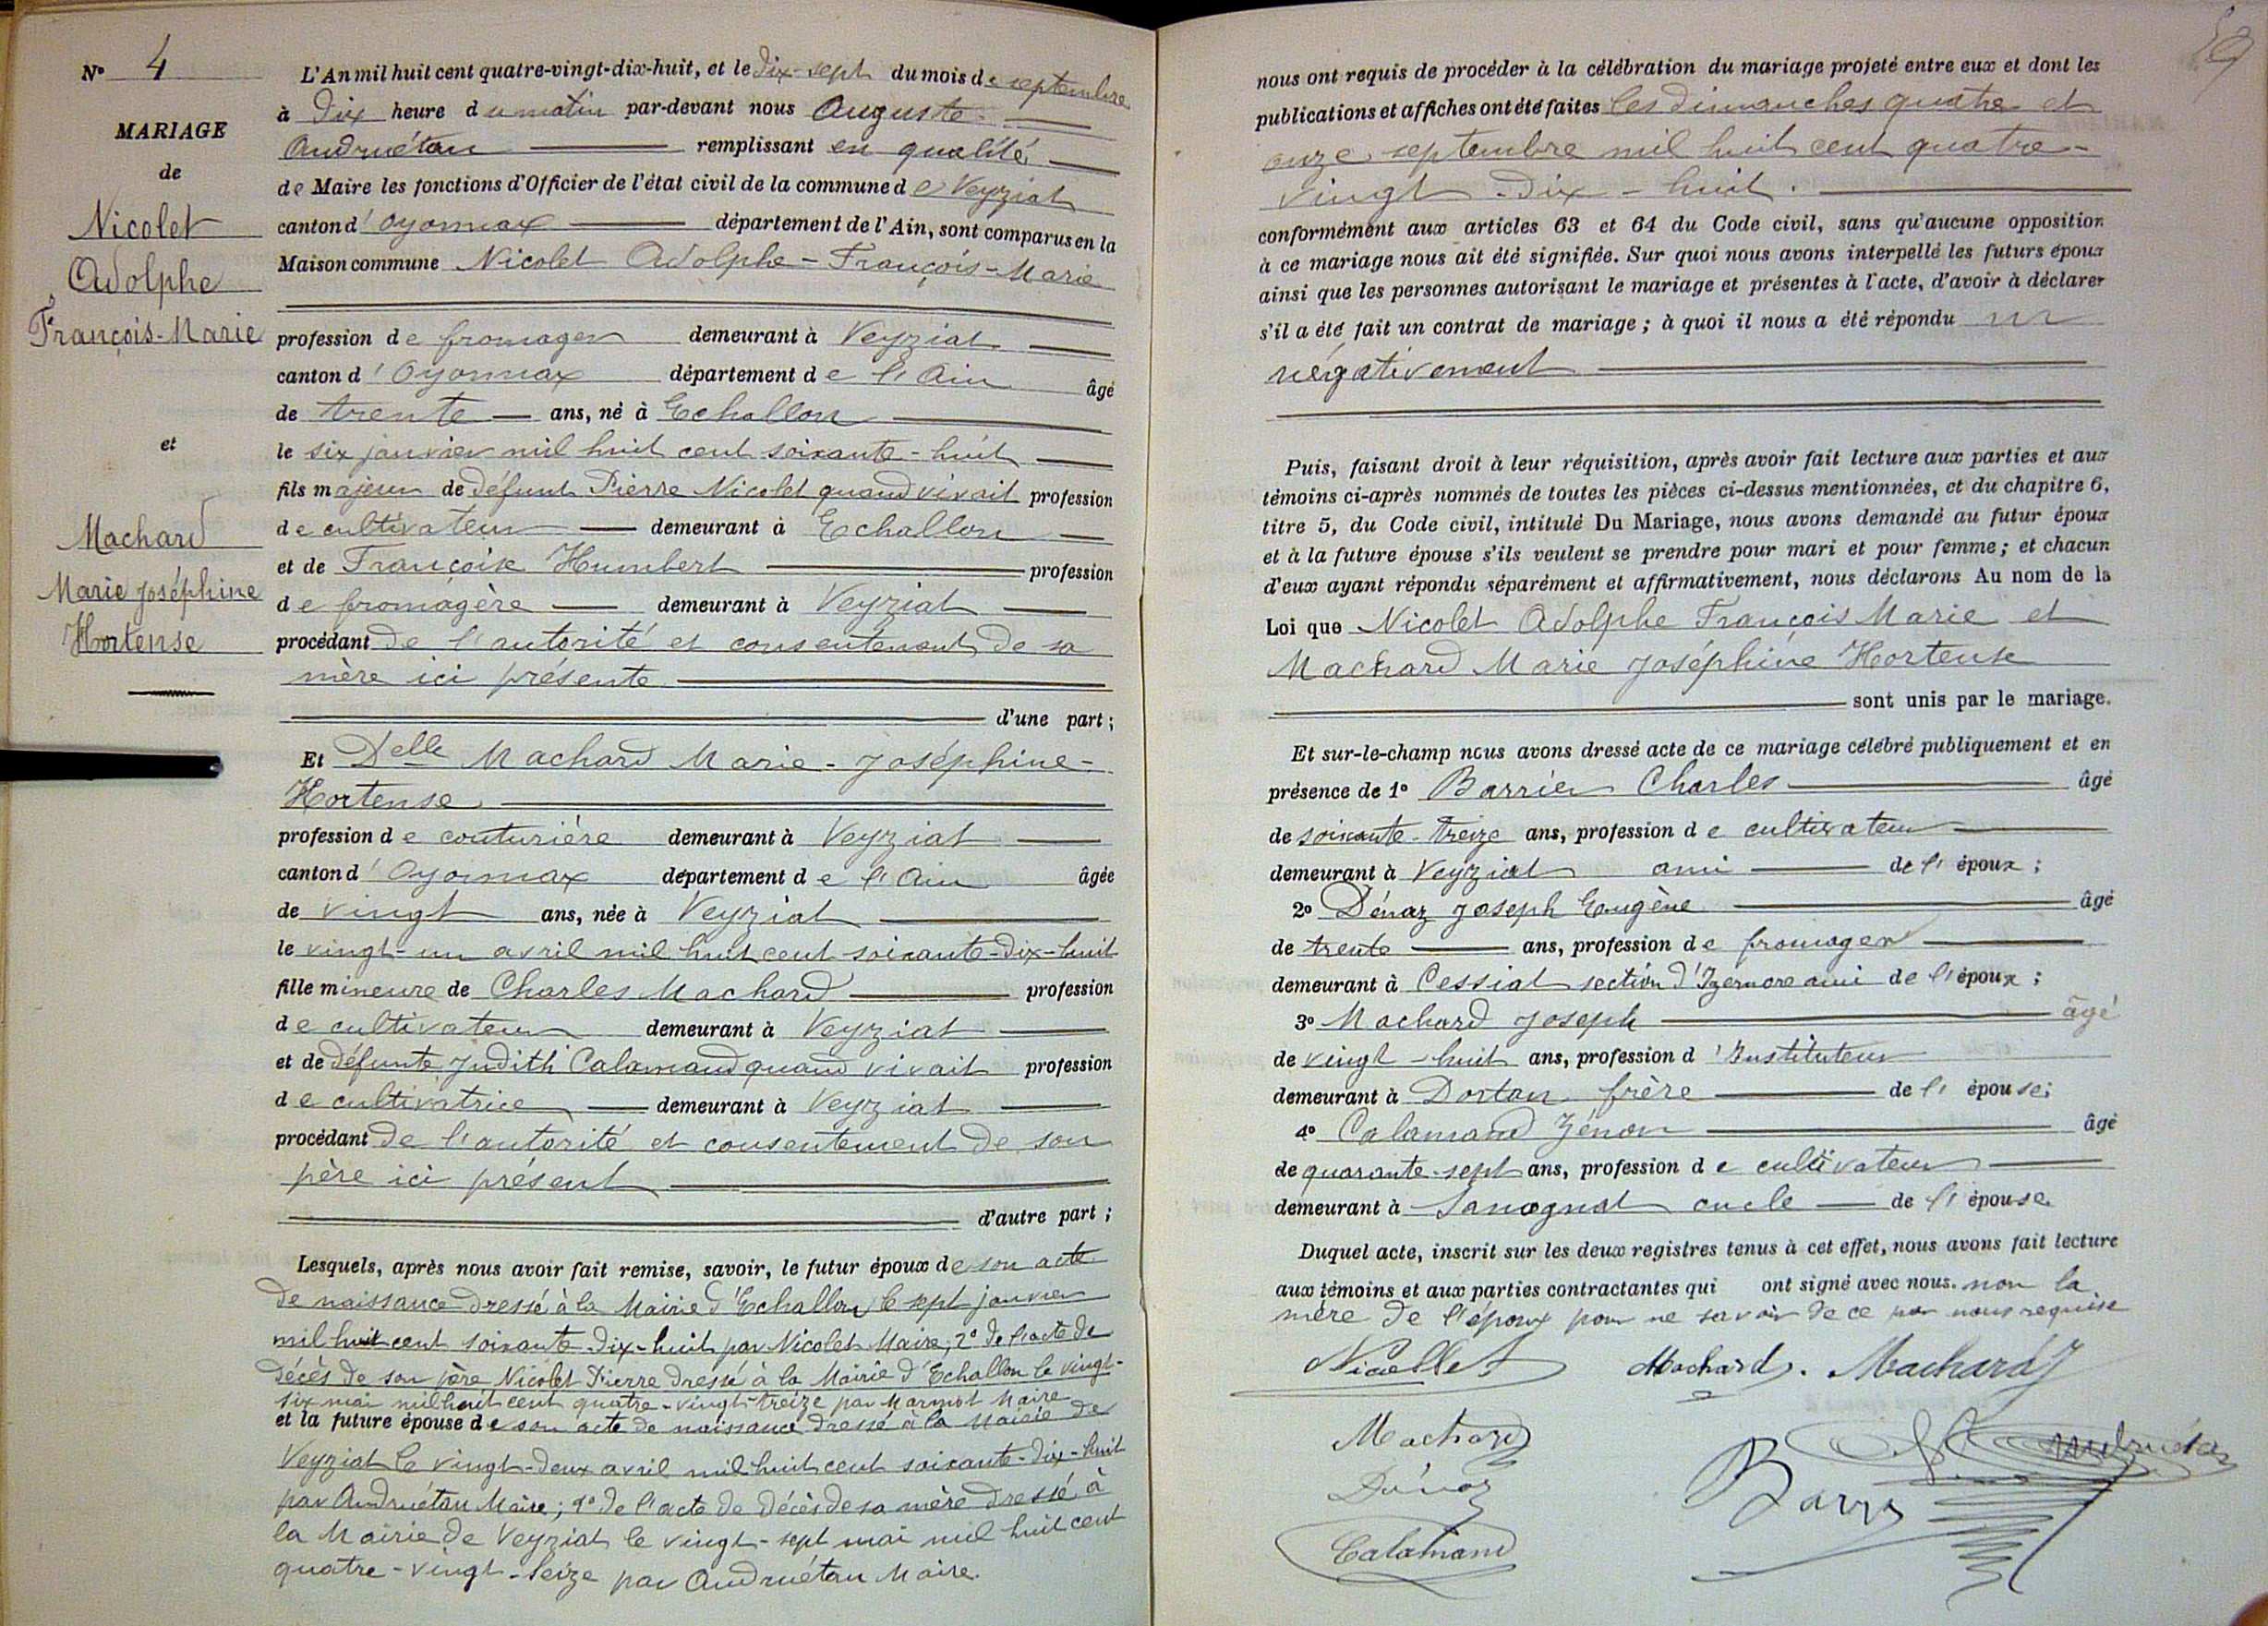 N° 4
MARIAGE
de
Nicolet
Adolphe
François-Marie
et
Machard
Marie Joséphine
Hortense
L'An mil huit cent quatre-vingt-dix-huit, et le dix-sept du mois de septembre
à dix heure du matin par-devant nous Auguste
Andruétan remplissant en qualité
de Maire les fonctions d'Officier de l'état civil de la commune de Veyziat
canton d'Oyonnax département de l'Ain, sont comparus en la
Maison commune Nicolet Adolphe-François-Marie
profession de fromager demeurant à Veyziat
canton d'Oyonnax département de l'Ain âgé
de trente ans, né à Echallon
le six janvier mil huit cent soixante-huit
fils majeur de défunt Pierre Nicolet quand vivait profession
de cultivateur demeurant à Echallon
et de Françoise Humbert profession
de fromagère demeurant à Veyziat
procédant de l'autorité et consentement de sa
mère ici présente
d'une part;
Et Delle Machard Marie-Joséphine-
Hortense
profession de couturière demeurant à Veyziat
canton d'Oyonnax département de l'Ain âgée
de vingt ans, née à Veyziat
le vingt-un avril mil huit cent soixante-dix-huit
fille mineure de Charles Machard profession
de cultivateur demeurant à Veyziat
et de défunte Judith Calamand quand vivait profession
de cultivatrice demeurant à Veyziat
procédant de l'autorité et consentement de son
père ici présent
d'autre part;
Lesquels, après nous avoir fait remise, savoir, le futur époux de son acte
de naissance dressé à la Mairie d'Echallon le sept janvier
mil huit cent soixante-dix-huit par Nicolet Maire; 2° de l'acte de
décès de son père Nicolet Pierre dressé à la Mairie d'Echallon le vingt-
six mai mil huit cent quatre-vingt-treize par Marmot Maire
et la future épouse de son acte de naissance dressé à la Mairie de
Veyziat le vingt-deux avril mil huit cent soixante-dix-huit
par Andruétan Maire; 2° de l'acte de décès de sa mère dressé à
la Mairie de Veyziat le vingt-sept mai mil huit cent
quatre-vingt-seize par Andruétan Maire.
nous ont requis de procéder à la célébration du mariage projeté entre eux et dont les
publications et affiches ont été faites les dimanches quatre et
onze septembre mil huit cent quatre-
vingt-dix-huit.
conformément aux articles 63 et 64 du Code civil, sans qu'aucune opposition
à ce mariage nous ait été signifiée. Sur quoi nous avons interpellé les futurs époux
ainsi que les personnes autorisant le mariage et présentes à l'acte, d'avoir à déclarer
s'il a été fait un contrat de mariage; à quoi il nous a été répondu
négativement
Puis, faisant droit à leur réquisition, après avoir fait lecture aux parties et aux
témoins ci-après nommés de toutes les pièces ci-dessus mentionnées, et du chapitre 6,
titre 5, du Code civil, intitulé Du Mariage, nous avons demandé au futur époux
et à la future épouse s'ils veulent se prendre pour mari et pour femme; et chacun
d'eux ayant répondu séparément et affirmativement, nous déclarons Au nom de la
Loi que Nicolet Adolphe François Marie et
Machard Marie Joséphine Hortense
sont unis par le mariage.
Et sur-le-champ nous avons dressé acte de ce mariage célébré publiquement et en
présence de 1° Barrier Charles âgé
de soixante-treize ans, profession de cultivateur
demeurant à Veyziat ami de l'époux;
2° Dénaz Joseph Eugène âgé
de trente ans, profession de fromager
demeurant à Cessiat section d'Izernore ami de l'époux;
3° Machard Joseph âgé
de vingt-huit ans, profession d'Instituteur
demeurant à Dortan frère de l'épouse;
4° Calamand Zénon âgé
de quarante-sept ans, profession de cultivateur
demeurant à Samognat oncle de l'épouse
Duquel acte, inscrit sur les deux registres tenus à cet effet, nous avons fait lecture
aux témoins et aux parties contractantes qui ont signé avec nous. non la
mère de l'époux pour ne savoir de ce par nous requise
Nicollet Machard. Machard J
Machard Andruétan
Dénaz
Calamand